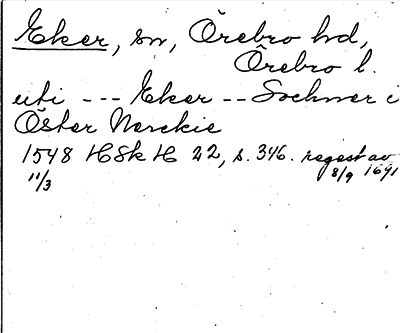 Eker, sn, Örebro hd,
Örebro l.
uti --- Eker -- Sochner i
Öster Nerckie
1548 HSk H 22, s. 346. regest av
11/3 8/9 1691